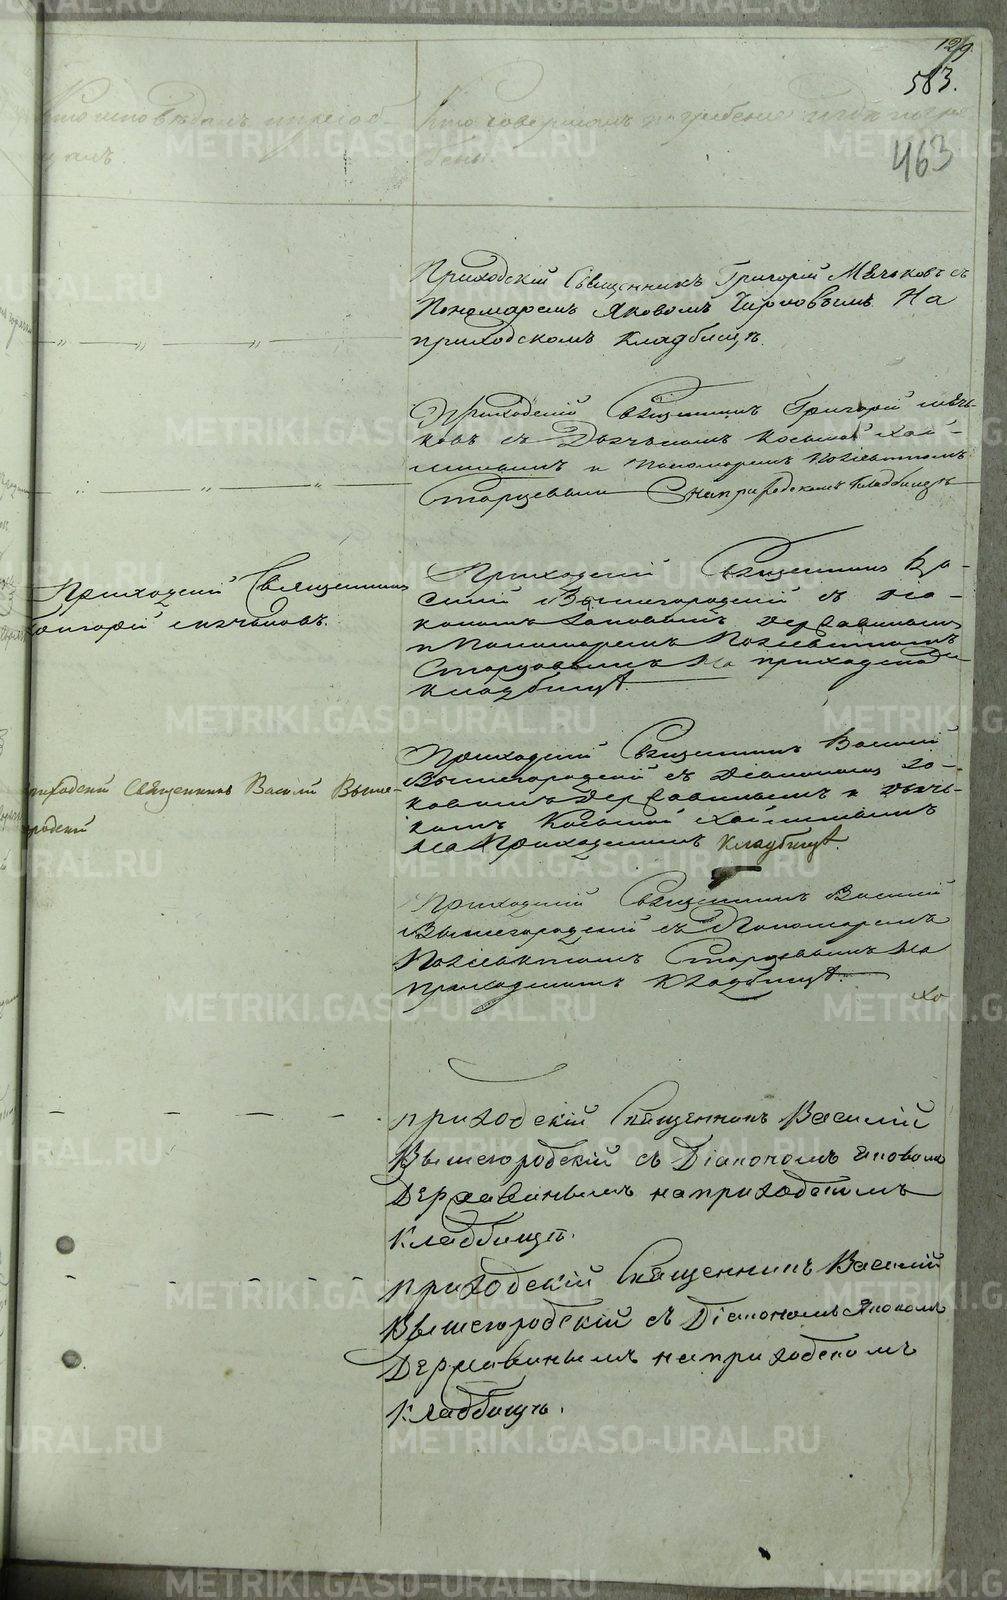 129
583.
463
Кто исповѣдалъ и пріоб-
щалъ.
Кто совершалъ погребеніе и гдѣ погре
бены.
Приходскій Священникъ Григорій Мѣчковъ съ
Пономаремъ Яковомъ Чирковымъ На
приходскомъ Кладбищѣ.
Приходскій Священникъ Григорій Мѣч-
ковъ съ Дьячкомъ Космою
и Пономаремъ
Старцевымъ на приходскомъ Кладбищѣ
Приходскій Священникъ
Григорій Мѣчковъ.
Приходскій Священникъ Ва-
силій Вышегородскій съ Діа-
кономъ Іаковымъ Державинымъ
и Пономаремъ
Старцевымъ На приходскомъ
кладбищѣ.
приходскій Священникъ Василій Выше-
городскій
Приходскій Священникъ Василій
Вышегородскій съ Діакономъ Іа-
ковомъ Державинымъ и Дьяч-
комъ Космою
На Приходскомъ кладбищѣ.
Приходскій Священникъ Василій
Вышегородскій съ Пономаремъ
Старцевымъ На
приходскомъ кладбищѣ.
приходскій Священникъ Василій
Вышегородскій съ Діакономъ Яковомъ
Державинымъ на приходскомъ
Кладбищѣ.
приходскій Священникъ Василій
Вышегородскій съ Діакономъ Яковомъ
Державинымъ на приходскомъ
Кладбищѣ.
METRIKI.GASO-URAL.RU